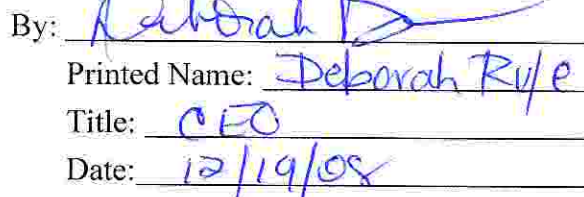 By: Deborah
Printed Name: Deborah
Title: CEO
Date: 12/19/08